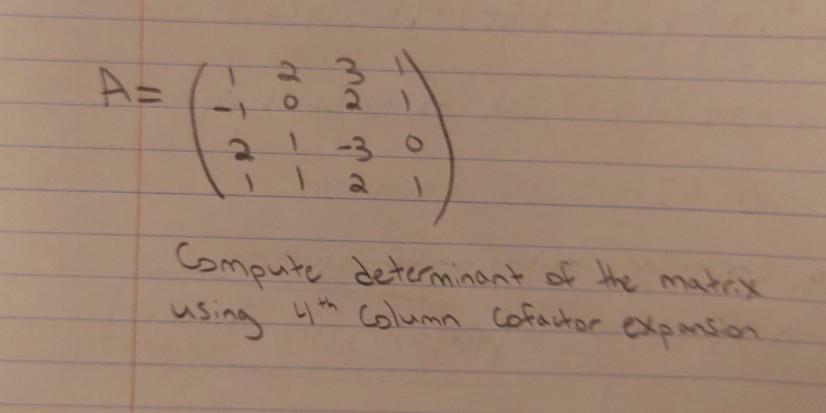 A = ( 1 2 3 1
-1 0 2 1
2 1 -3 0
1 1 2 1 )
Compute determinant of the matrix
using 4th Column Cofactor expansion